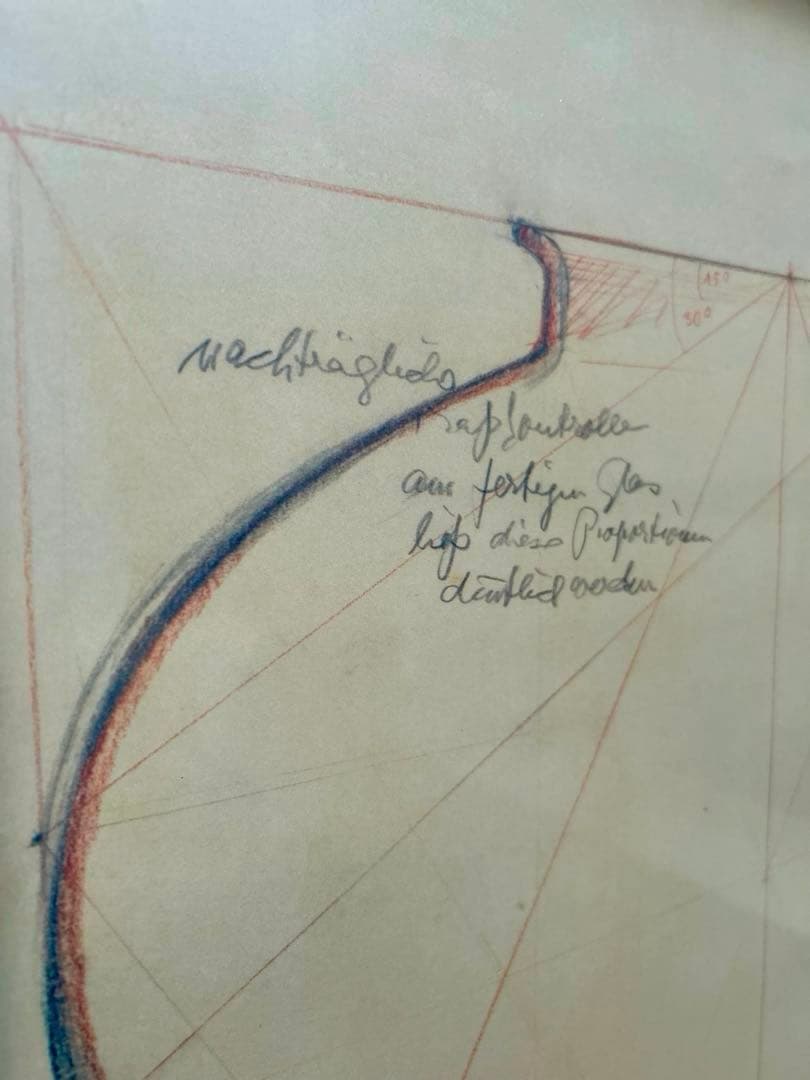 nachträglich
Maßkontrolle
am fertigen Glas
ließ diese Proportionen
deutlich werden
15°
30°